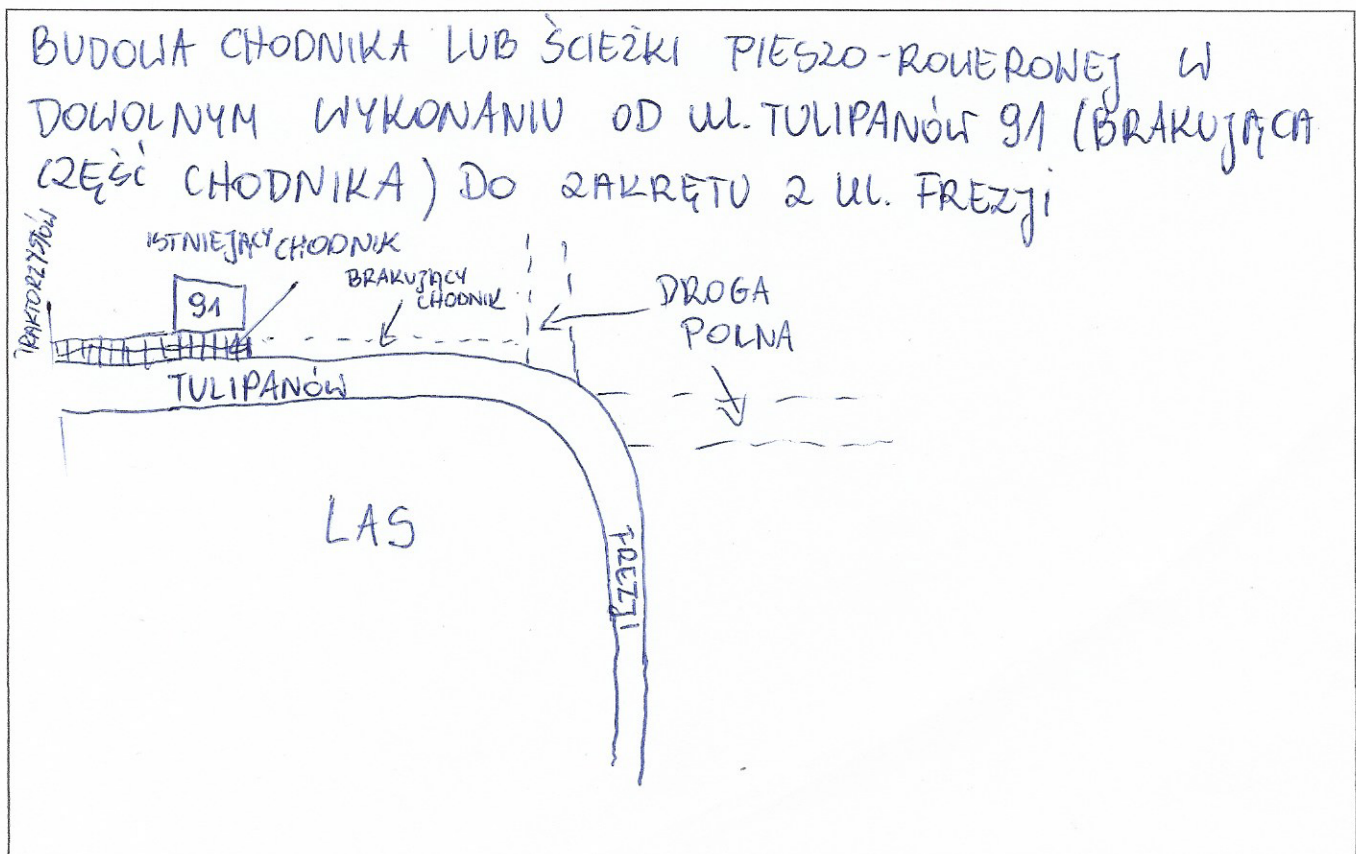 BUDOWA CHODNIKA LUB ŚCIEŻKI PIESZO-ROWEROWEJ W
DOWOLNYM WYKONANIU OD UL. TULIPANÓW 91 (BRAKUJĄCA
CZĘŚĆ CHODNIKA) DO ZAKRĘTU Z UL. FREZJI
TRAKTORZYSTÓW
ISTNIEJĄCY CHODNIK
BRAKUJĄCY
CHODNIK
91
DROGA
POLNA
TULIPANÓW
LAS
FREZJI